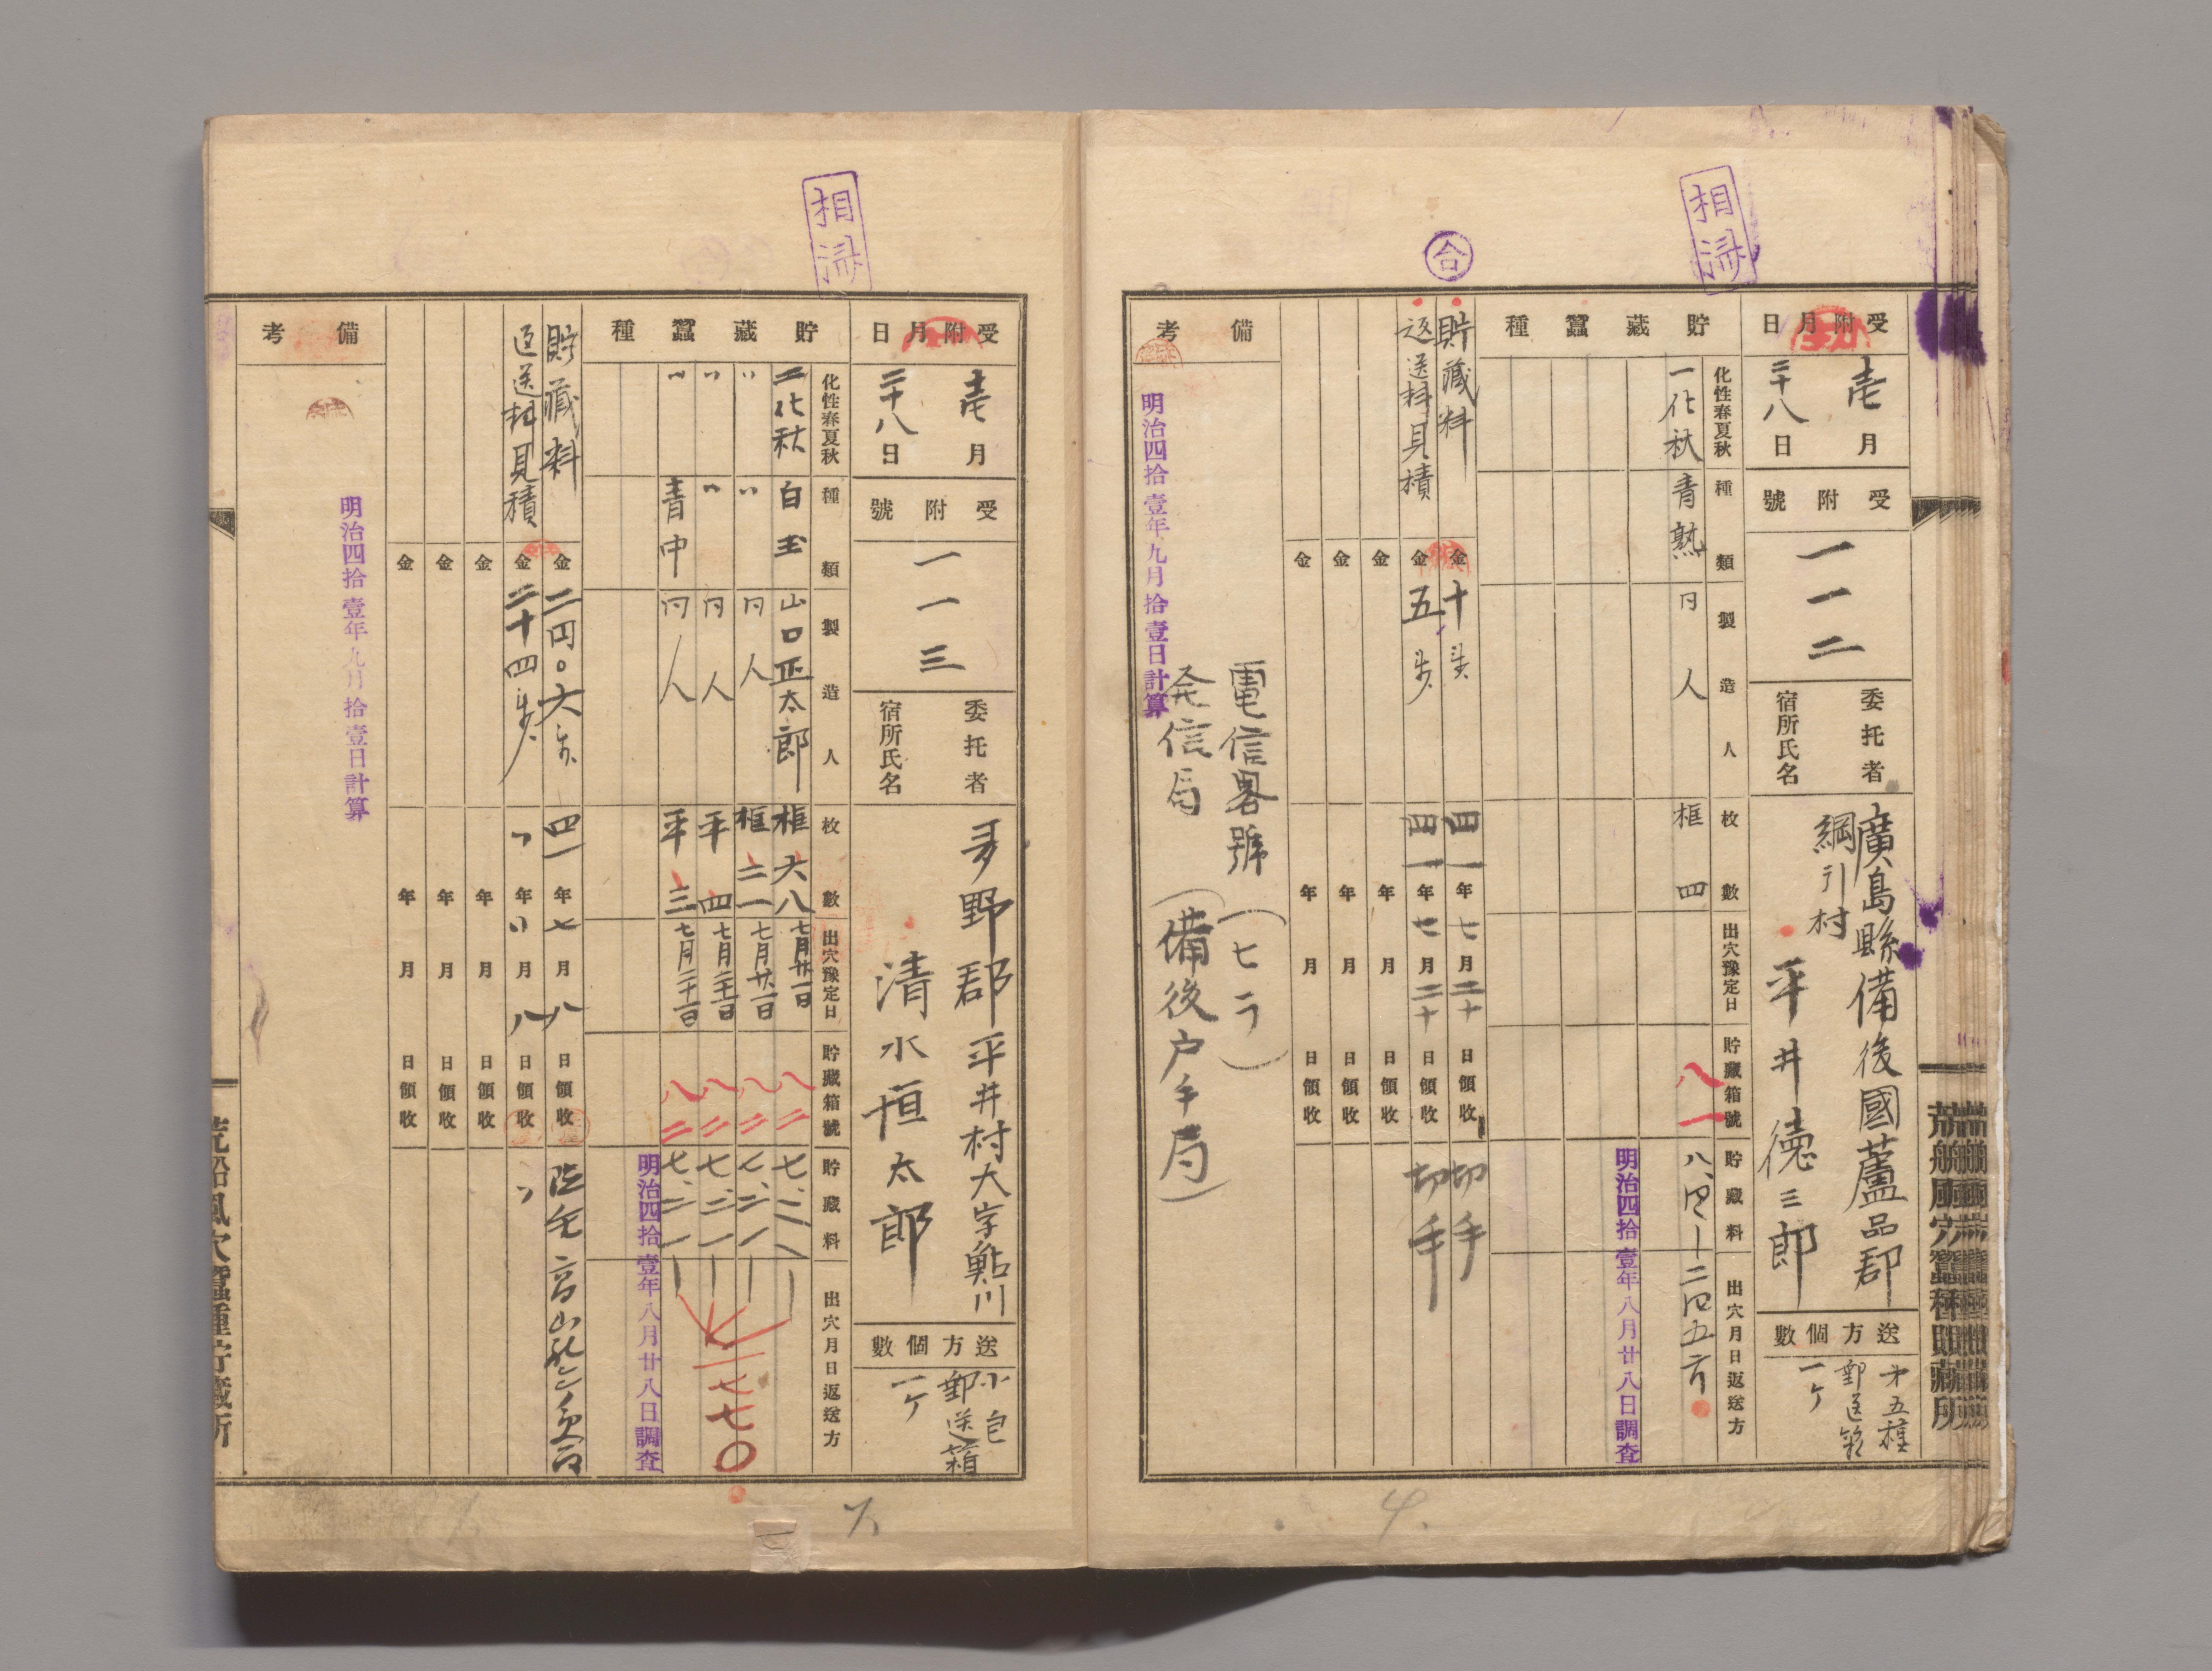 相済
受附月日
壱月
二十八日
受附號
一一二
委托者
宿所氏名
廣島縣備後國蘆品郡
綱引村
平井徳三郎
送方個數
第五種
郵送箱
一ケ
貯藏蠶種
化性春夏秋
種類
製造人
枚數
出穴豫定日
貯藏箱號
貯藏料
出穴月日返送方
一化秋
青熟
同人
框四
八一
明治四拾壹年八月廿八日調査
合
貯藏料
金十銭
四一年七月二十日領收
切手
返送料見積
金五銭
四一年七月二十日領收
切手
金
年月日領收
金
年月日領收
金
年月日領收
備考
電信畧號(七ラ)
発信局(備後戸手局)
明治四拾壹年九月拾壹日計算
荒船風穴蠶種貯藏所
相済
受附月日
壱月
二十八日
受附號
一一三
委托者
宿所氏名
多野郡平井村大字鮎川
清水恒太郎
送方個數
小包
郵送箱
一ケ
貯藏蠶種
化性春夏秋
種類
製造人
枚數
出穴豫定日
貯藏箱號
貯藏料
出穴月日返送方
二化秋 白玉 山口正太郎 框六八 七月廿一日 八二 七、二一
〃 〃 同人 框二一 七月廿一日 八二 七、二一
〃 〃 同人 平四 七月二十一日 八二 七、二一
〃 青中 同人 平三 七月二十一日 八二 七、二一
一七〇
明治四拾壹年八月廿八日調査
貯藏料
金二円〇六銭
四一年七月八日領收
返送料見積
金二十四銭
〃年〃月八日領收
〃
金
年月日領收
金
年月日領收
金
年月日領收
備考
明治四拾壹年九月拾壹日計算
荒船風穴蠶種貯藏所